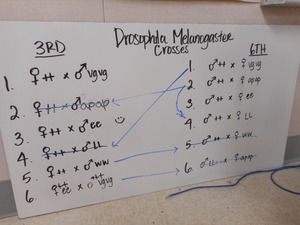 Drosophila Melanogaster
Crosses
3RD
1. ♀++ x ♂vgvg
2. ♀++ x ♂apap
3. ♀++ x ♂ee
4. ♀++ x ♂LL
5. ♀++ x ♂ww
6. ♀ee x ♂vgvg
++ ++
6TH
1. ♂++ x ♀vgvg
2. ♂++ x ♀apap
3. ♂++ x ♀ee
4. ♂++ x ♀LL
5. ♂++ x ♀ww
6. ♂LL x ♀apap